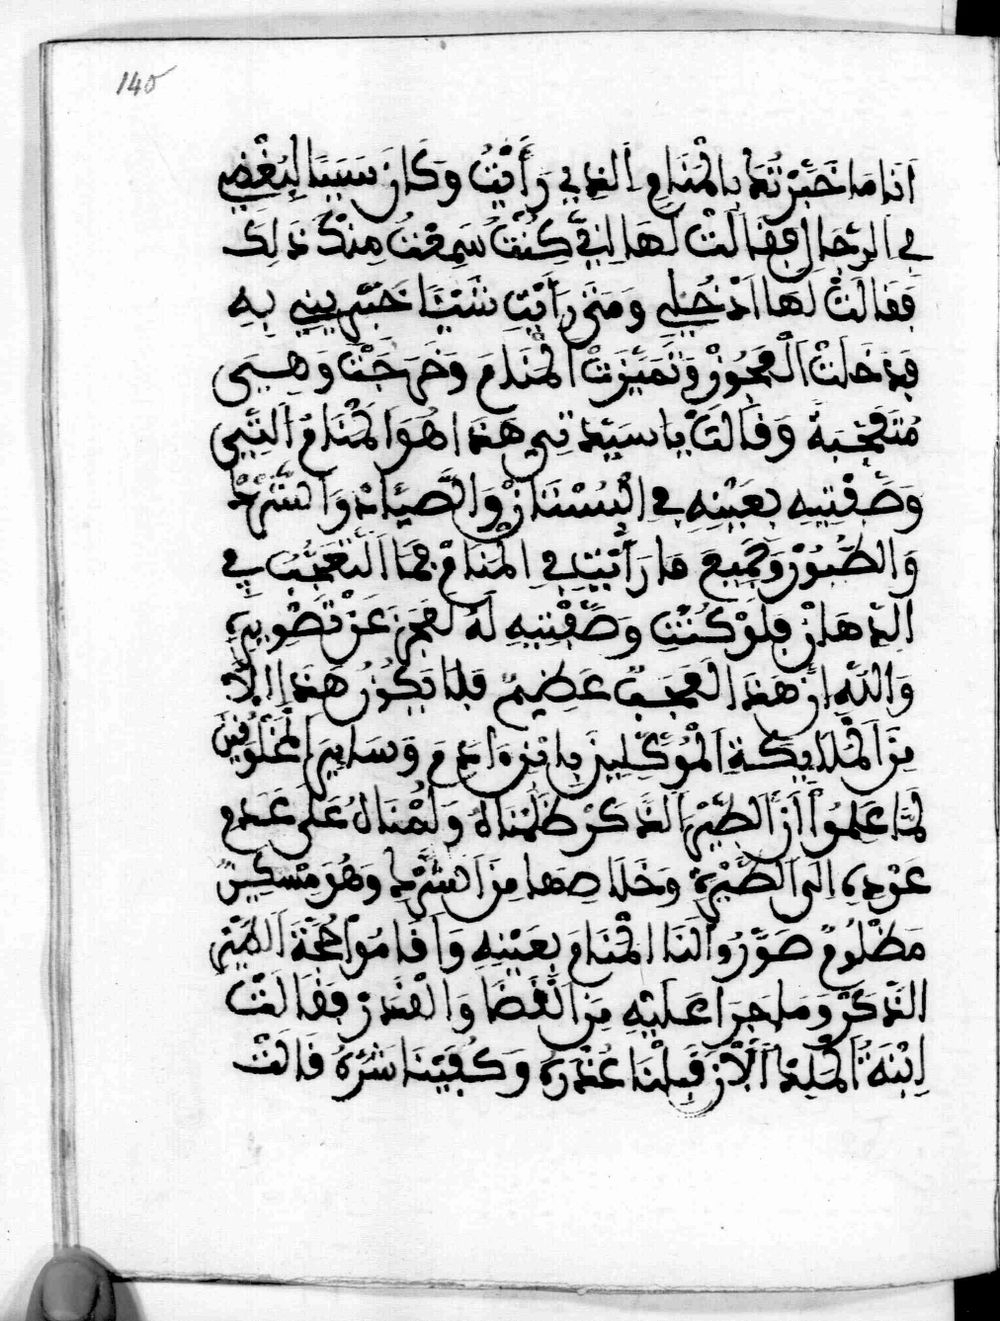 145
انا ما خَبَّرْتُكَ بِالْمَنَامِ الذِي رَأَيْتُ وَكَانَ سَبَبًا لِبُغْضِي
في الرِّجَال فقالتْ لَهَا إنِّي كُنْتُ سَمِعْتُ مِنْكَ ذَلِكَ
فقالتْ لها ادْخُلِي وَمَتَى رَأَيْتِ شَيْئًا خَبِّرِينِي بِهِ
فدخلتْ الْعَجُوزْ وَتَمَيَّزَتْ الْمَنَامَ وَخَرَجَتْ وهِيَ
مُتَعَجِّبَةً وَقَالَتْ يا سَيِّدَتِي هَذا هُوَ الْمَنَامُ الَّتِي
وَصَفْتِيهِ بِعَيْنِهِ فِي الْبُسْتَانْ وَالصَّيَّادْ وَالشَّرَكْ
وَالطُّيُورْ وَجَمِيعَ مَا رَأَيْتِيهِ فِي الْمَنَامْ فما التَّعَجُّبُ فِي
الدّهَانْ فَلَوْ كُنْتِ وَصَفْتِيهِ لَهُ لعَجَزَ عَنْ تَصْوِيرِهِ
وَاللَّهِ انَّ هَذَا الْعَجَبٌ عَظِيمٌ فلا يَكُونُ هَذَا إلاَّ
مِنَ الْمَلَايِكَةِ الْمُوَكَّلِينَ بِابْنِ وَادَمَ وَسَايِرِ الْمَخْلُوقِينَ
لَمَّا عَلِمُوا أَنَّ الطَّيْرَ الذَّكَرْ ظَلَمْنَاهُ وَلُمْنَاهُ عَلَى عَدَمِ
عَوْدِهِ إلى الطَّيْرَةْ وَخَلَاصِهَا مِنَ الشَّرَكِ وَهُوَ مِسْكِينٌ
مَظْلُومٌ صَوَّرُوا لَنَا الْمَنَامَ بِعَيْنِهِ وَأَقَامُوا حُجَّةَ الطَّيْرِ
الذَّكَرْ وَمَا جَرَا عَلَيْهِ مِنَ الْقَضَا وَالْقَدَرْ فقالتْ
ابْنَةُ الْمَلِكْ الْآنَ قَبِلْنَا عُذْرَهُ وَكُفِينَا شَرَّهُ قالتْ